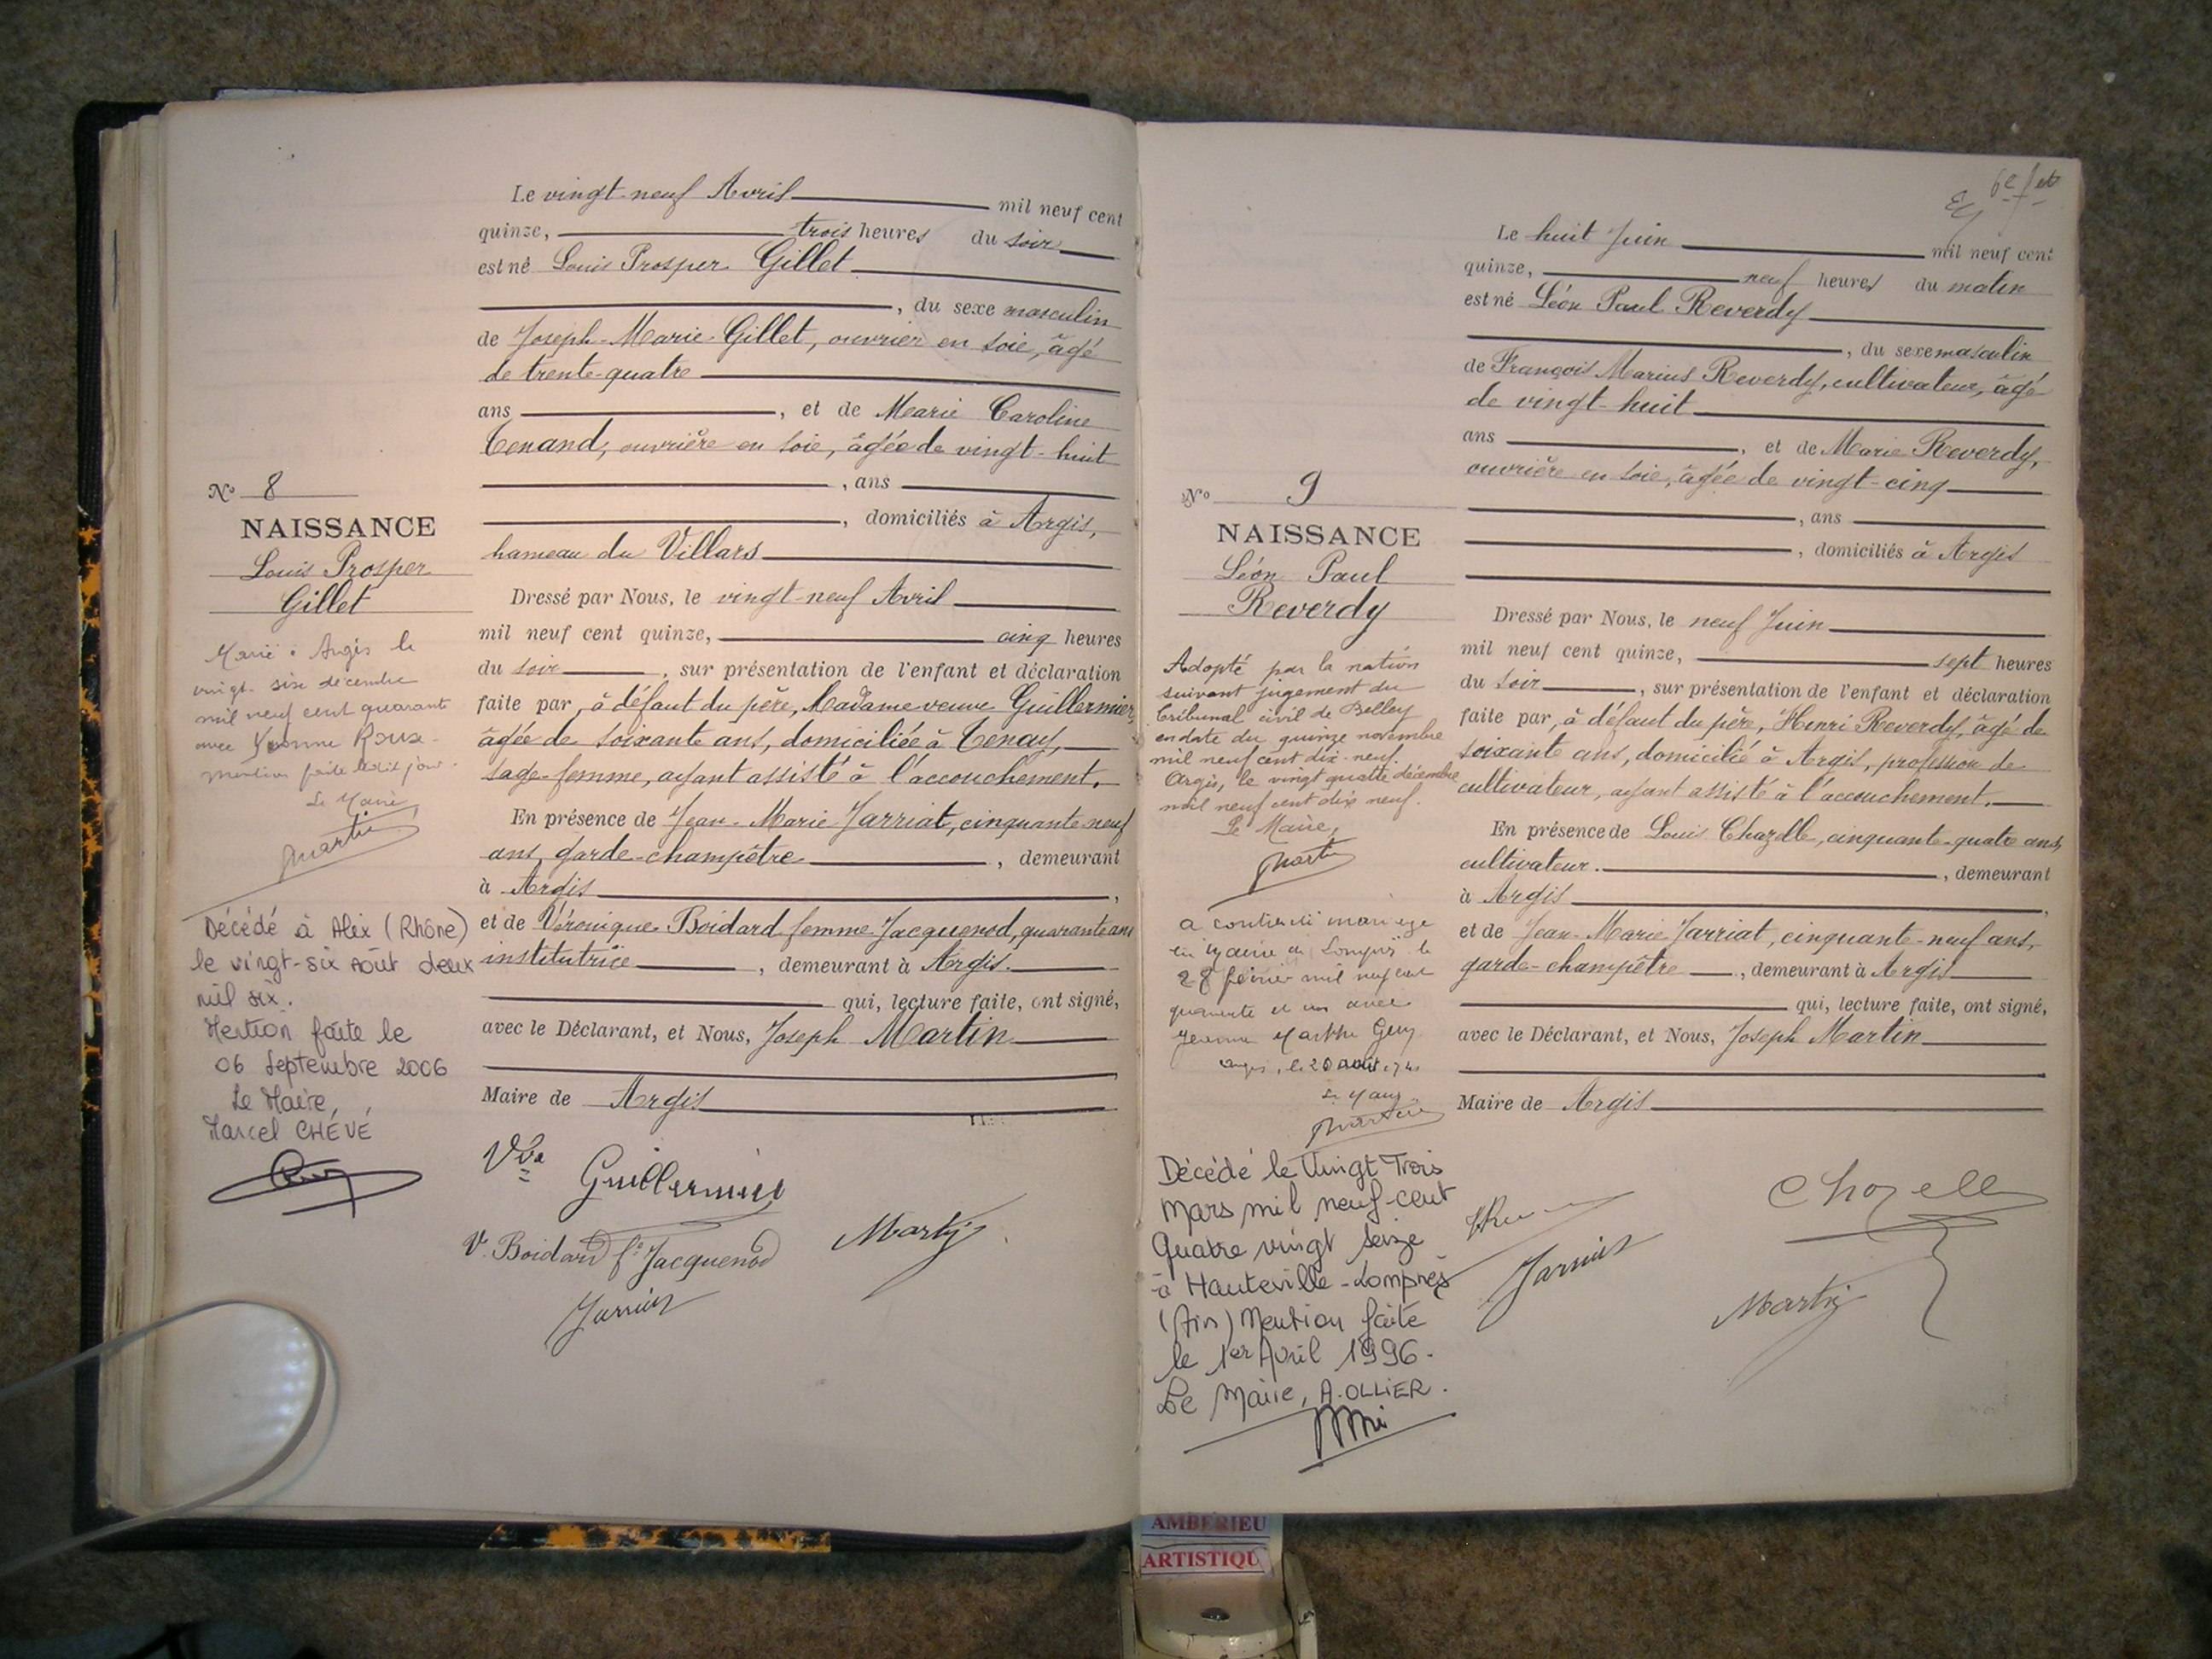 Le vingt-neuf Avril mil neuf cent
quinze, trois heures du soir
est né Louis Prosper Gillet
, du sexe masculin
de Joseph-Marie Gillet, ouvrier en soie, âgé
de trente-quatre
ans , et de Marie Caroline
Tenand, ouvrière en soie, âgée de vingt-huit
, ans
, domiciliés à Argis,
hameau du Villars
Dressé par Nous, le vingt-neuf Avril
mil neuf cent quinze, cinq heures
du soir , sur présentation de l'enfant et déclaration
faite par, à défaut du père, Madame veuve Guillermier,
âgée de soixante ans, domiciliée à Tenay,
sage-femme, ayant assisté à l'accouchement.
En présence de Jean-Marie Jarriat, cinquante neuf
ans, garde-champêtre , demeurant
à Argis ,
et de Véronique Boidard femme Jacquenod, quarante ans
institutrice , demeurant à Argis.
qui, lecture faite, ont signé,
avec le Déclarant, et Nous, Joseph Martin
Maire de Argis
Vve Guillermier
V. Boidard fe Jacquenod
Martin
N° 8
NAISSANCE
Louis Prosper
Gillet
Marié à Argis le
vingt-six décembre
mil neuf cent quarante
avec Yvonne Roux
mention faite ledit jour.
Le Maire,
Martin
Décédé à Alix (Rhône)
le vingt-six Août deux
mil six.
Mention faite le
06 Septembre 2006
Le Maire,
Marcel CHÉVÉ
6e
Le huit Juin mil neuf cent
quinze, neuf heures du matin
est né Léon Paul Reverdy
, du sexe masculin
de François Marius Reverdy, cultivateur, âgé
de vingt-huit
ans , et de Marie Reverdy,
ouvrière en soie, âgée de vingt-cinq
, ans
, domiciliés à Argis
Dressé par Nous, le neuf Juin
mil neuf cent quinze, sept heures
du soir , sur présentation de l'enfant et déclaration
faite par, à défaut du père, Henri Reverdy, âgé de
soixante ans, domicilié à Argis, profession de
cultivateur, ayant assisté à l'accouchement.
En présence de Louis Chazelle, cinquante-quatre ans,
cultivateur. , demeurant
à Argis ,
et de Jean-Marie Jarriat, cinquante-neuf ans,
garde-champêtre , demeurant à Argis
qui, lecture faite, ont signé,
avec le Déclarant, et Nous, Joseph Martin
Maire de Argis
Chozelle
Martin
N° 9
NAISSANCE
Léon Paul
Reverdy
Adopté par la nation
suivant jugement du
tribunal civil de Belley
en date du quinze novembre
mil neuf cent dix-neuf.
Argis, le vingt quatre décembre
mil neuf cent dix neuf.
Le Maire,
Martin
a contracté mariage
en Mairie de Lompnes le
28 février mil neuf cent
quarante et un avec
Jeanne Marthe Guy
Argis, le 20 août
Le Maire,
Martin
Décédé le Vingt Trois
Mars mil neuf-cent
Quatre vingt Seize
à Hauteville-Lompnes
(Ain) Mention faite
le 1er Avril 1996.
Le Maire, A. OLLIER.
AMBERIEU
ARTISTIQU